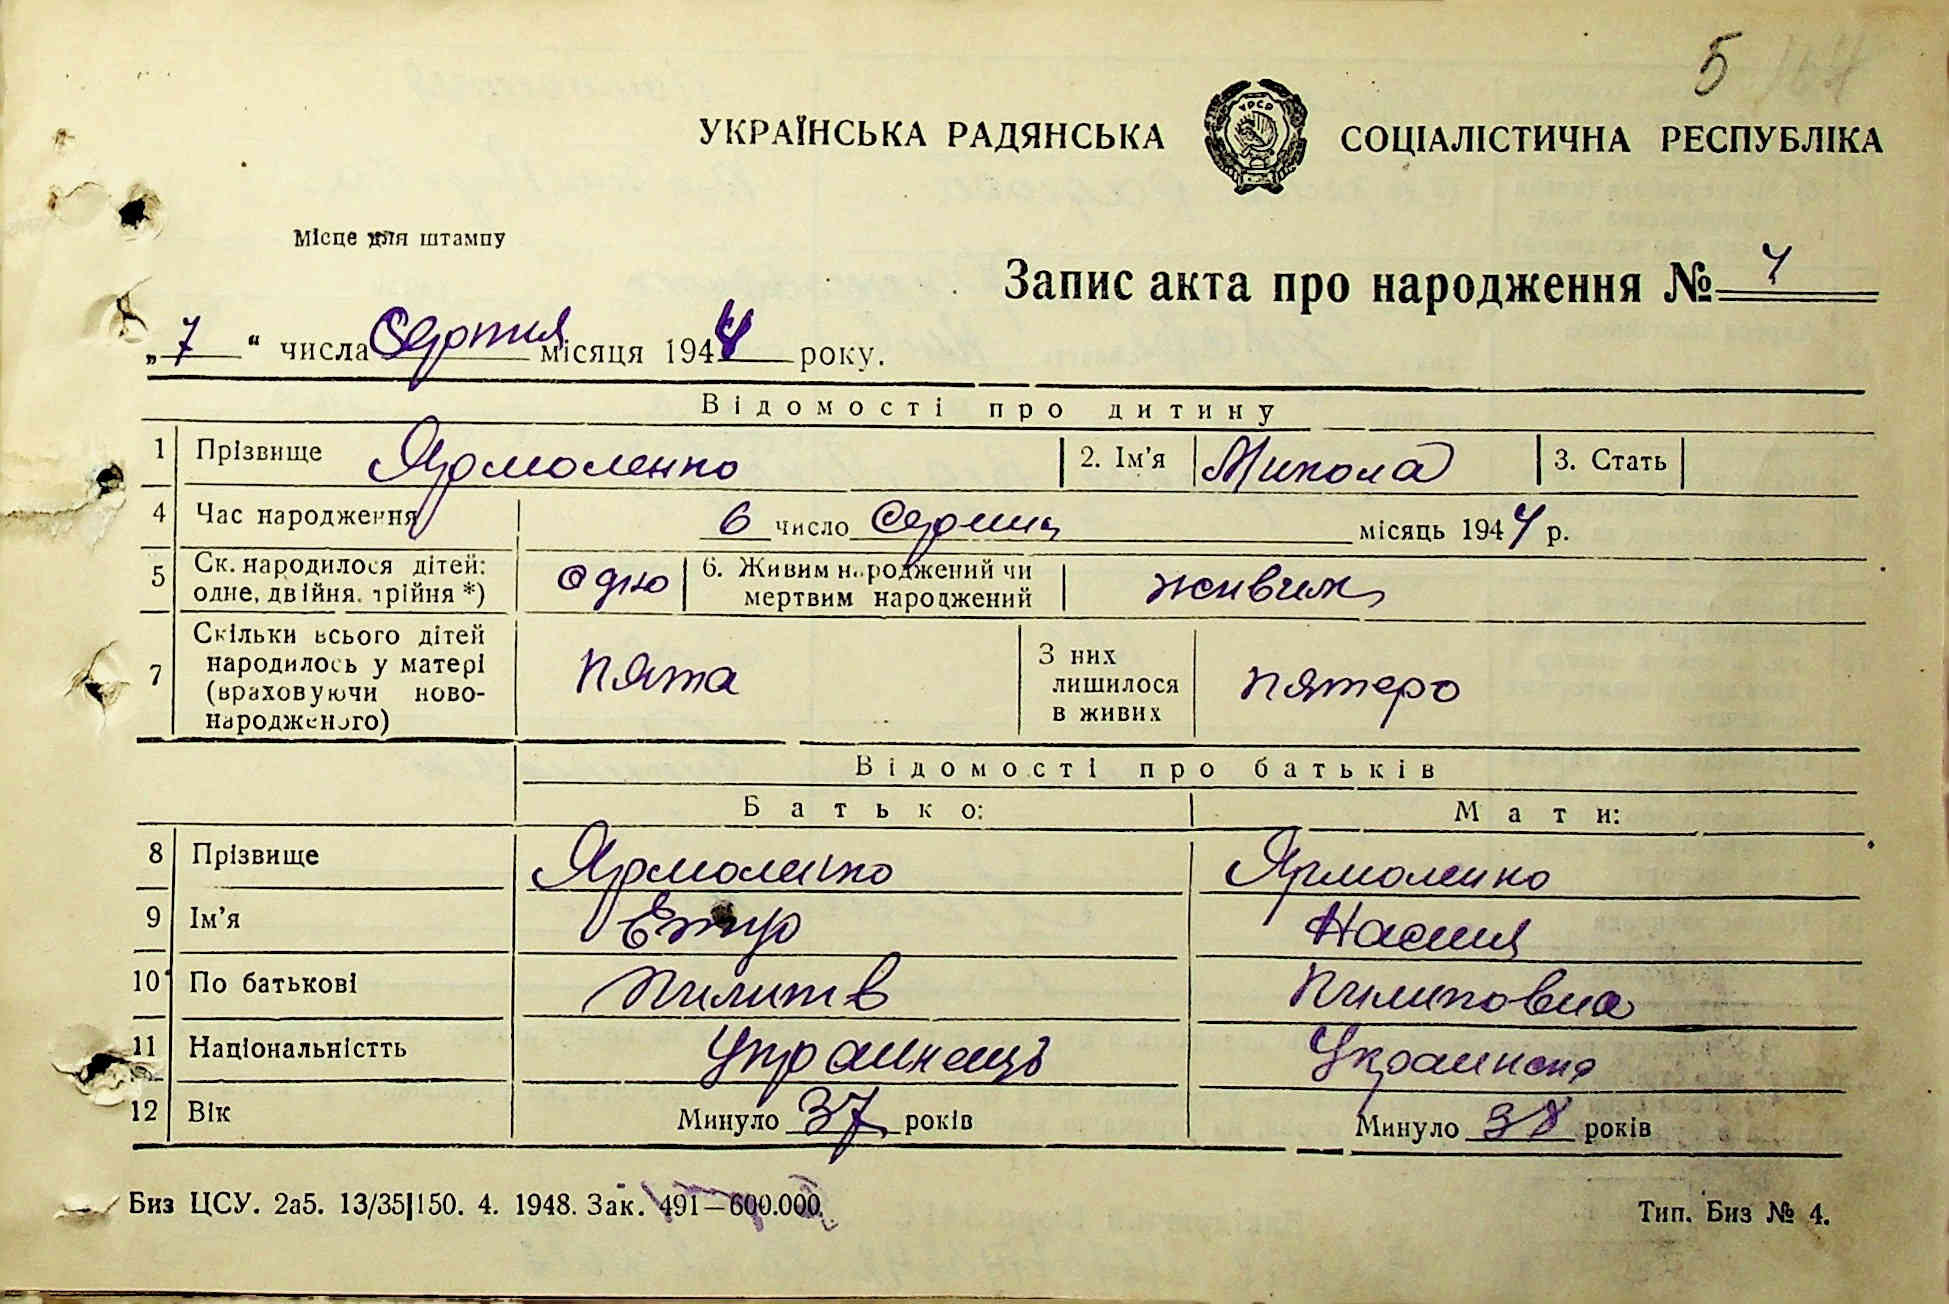 5
УКРАЇНСЬКА РАДЯНСЬКА СОЦІАЛІСТИЧНА РЕСПУБЛІКА
УРСР
Місце для штампу
Запис акта про народження №
„7" числа Серпня місяця 194 року.
Відомості про дитину
1 Прізвище Ярмоленко 2. Ім'я Микола 3. Стать
4 Час народження 6 число Серпня місяць 194 р.
5 Ск. народилося дітей: одно 6. Живим народжений чи живим
одне, двійня, трійня *) мертвим народжений
7 Скільки всього дітей пята З них пятеро
народилось у матері лишилося
(враховуючи ново- в живих
народженого)
Відомості про батьків
Батько: Мати:
8 Прізвище Ярмоленко Ярмоленко
9 Ім'я
10 По батькові Пилиповна
11 Національністть Украинець Украинка
12 Вік Минуло 37 років Минуло 38 років
Биз ЦСУ. 2а5. 13/35|150. 4. 1948. Зак. 491—600.000.
Тип. Биз № 4.